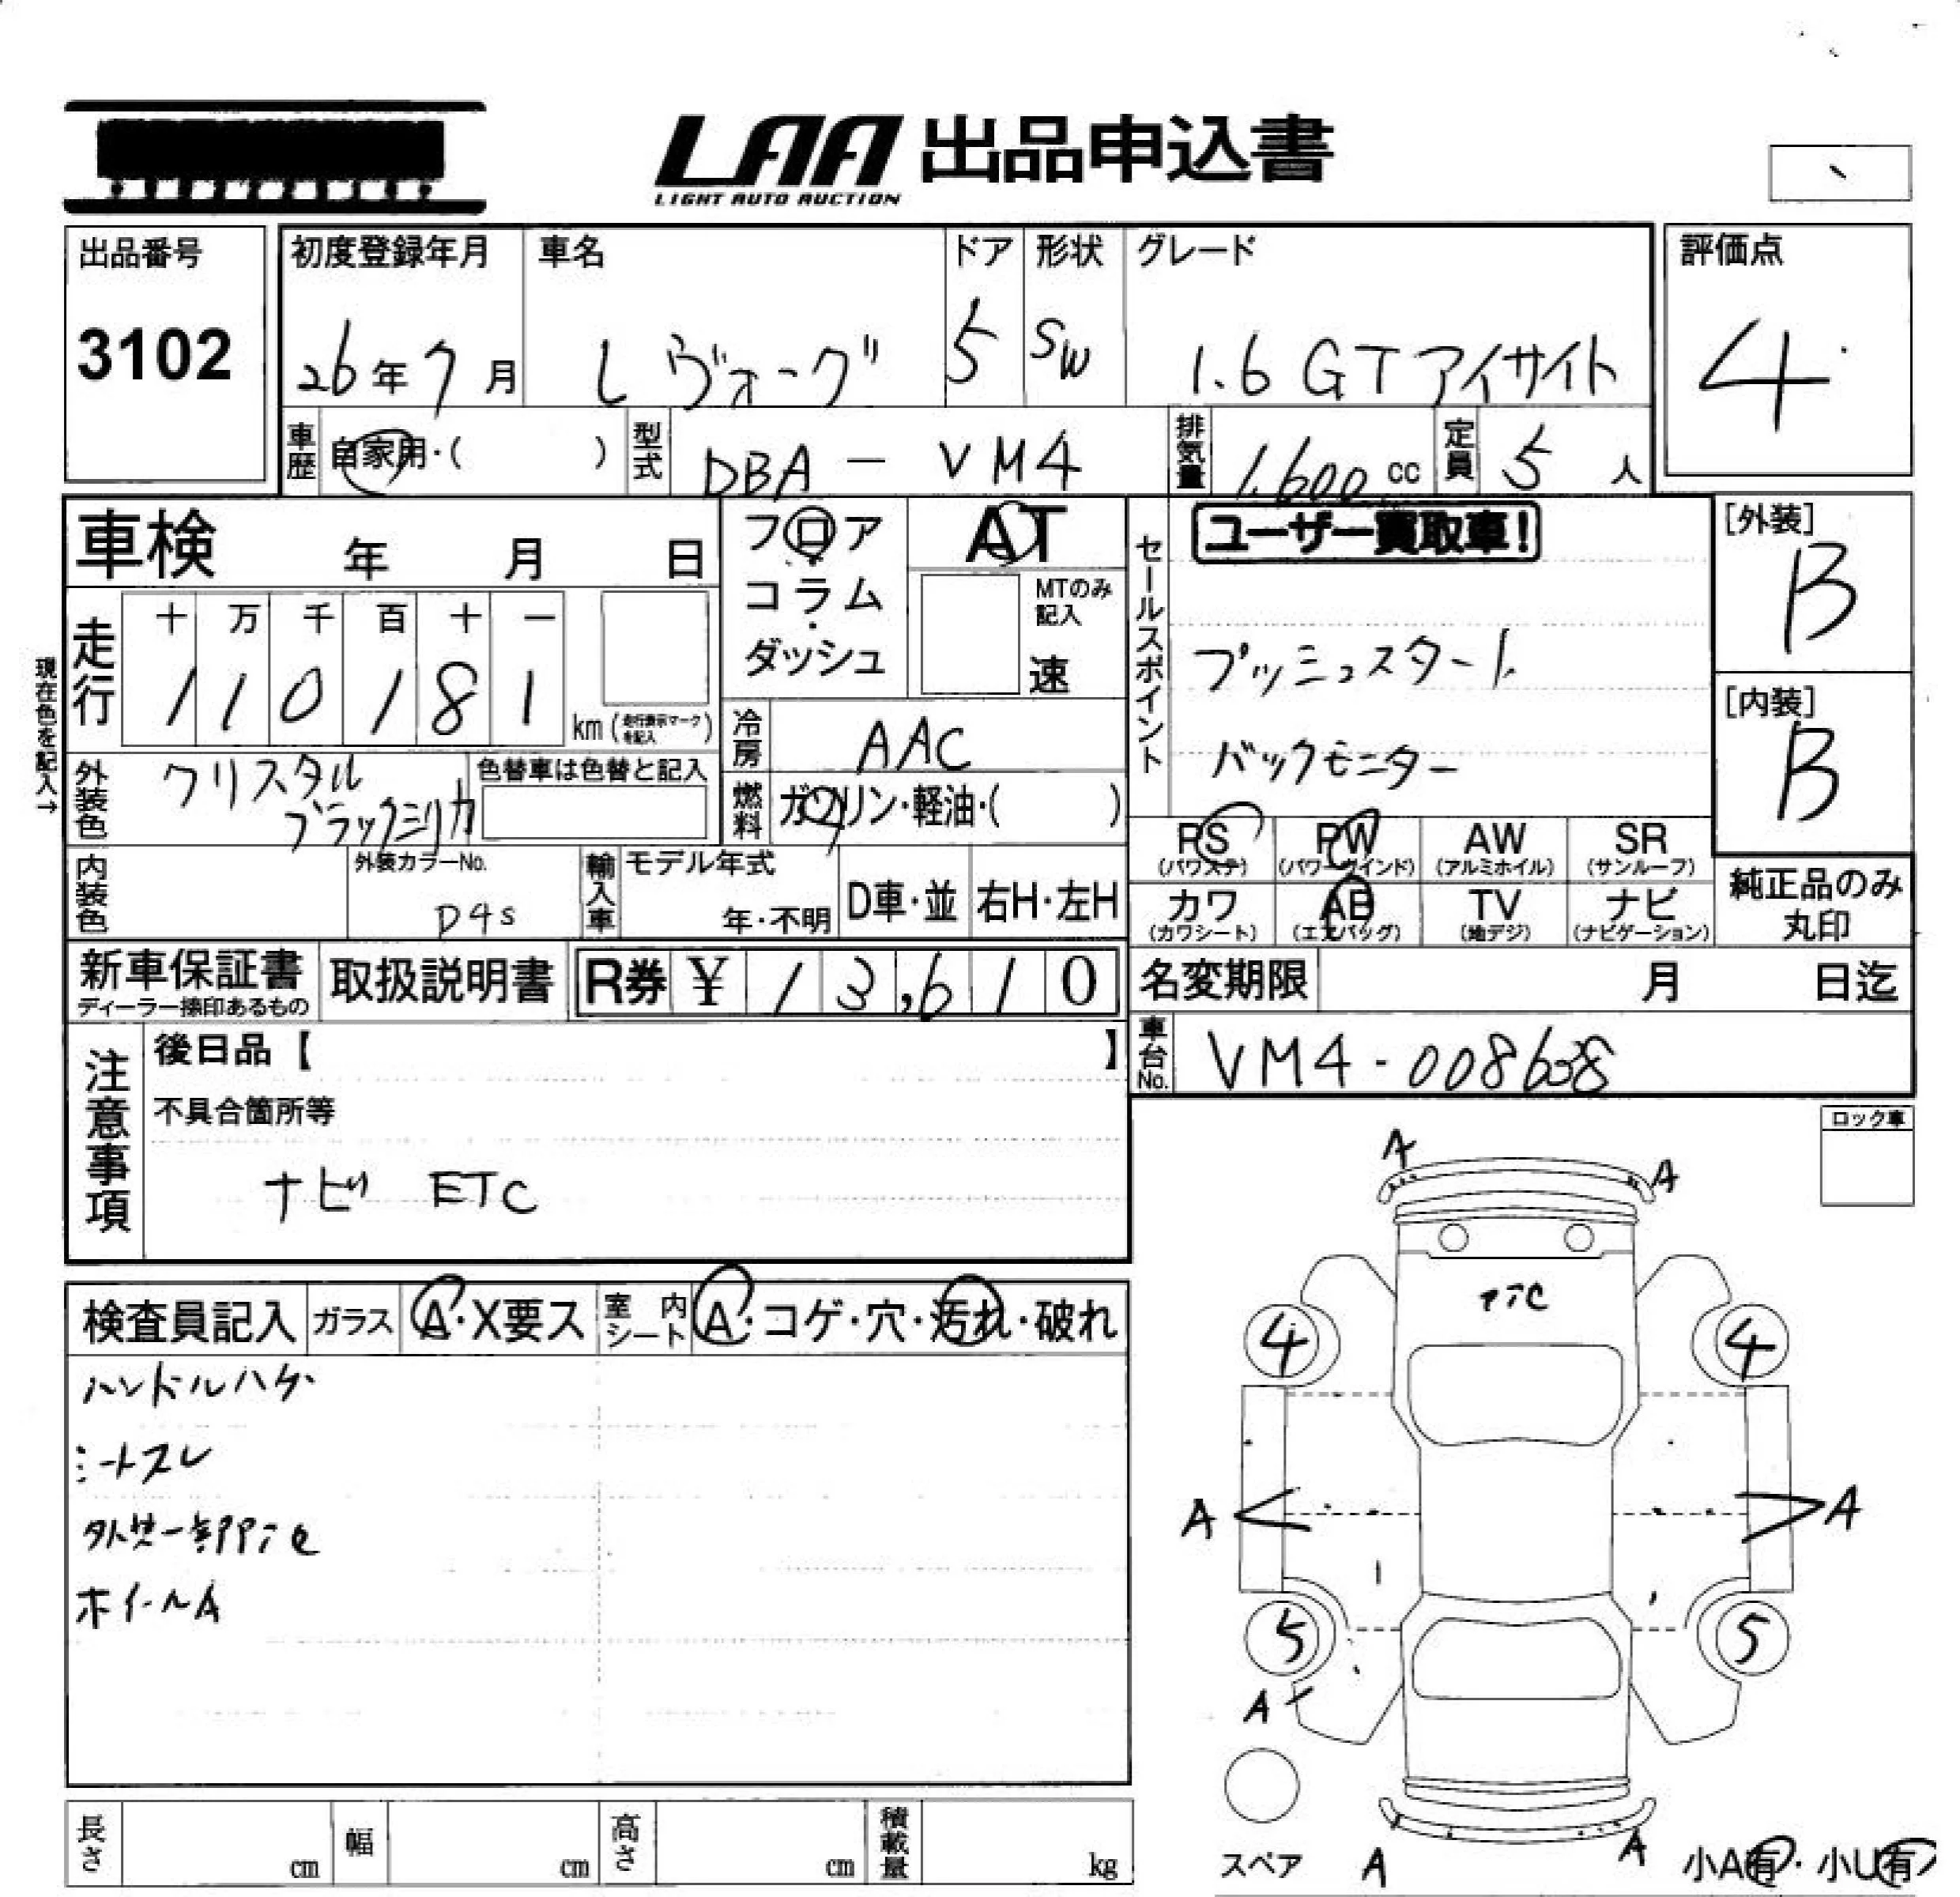 LAA 出品申込書
LIGHT AUTO AUCTION
出品番号
3102
初度登録年月
26年7月
車名
レヴォーグ
ドア
5
形状
SW
グレード
1.6 GT アイサイト
評価点
4
車歴
自家用・( )
型式
DBA - VM4
排気量
1,600 cc
定員
5 人
車検 年 月 日
フロア
・
コラム
・
ダッシュ
AT
MTのみ
記入
速
セールスポイント
ユーザー買取車!
プッシュスタート
バックモニター
[外装]
B
[内装]
B
現在色を記入→
走行
十 万 千 百 十 一
1 1 0 1 8 1
km (走行表示マークを記入)
冷房
AAC
外装色
クリスタル
ブラックシリカ
色替車は色替と記入
燃料
ガソリン・軽油・( )
PS
(パワステ)
PW
(パワーウインド)
AW
(アルミホイル)
SR
(サンルーフ)
カワ
(カワシート)
AB
(エアバッグ)
TV
(地デジ)
ナビ
(ナビゲーション)
純正品のみ
丸印
内装色
外装カラーNo.
D4S
輸入車
モデル年式
年・不明
D車・並
右H・左H
新車保証書
ディーラー捺印あるもの
取扱説明書
R券 ¥ 13,610
名変期限 月 日迄
車台No.
VM4-008638
注意事項
後日品【 】
不具合箇所等
ナビ ETC
ロック車
検査員記入
ガラス
A・X要ス
室内
シート
A・コゲ・穴・汚れ・破れ
ハンドルハゲ
シートスレ
外装一部
ホイールA
A
A
4
4
A
A
5
5
A
スペア
A
A
小A有・小U有
長さ cm
幅 cm
高さ cm
積載量 kg